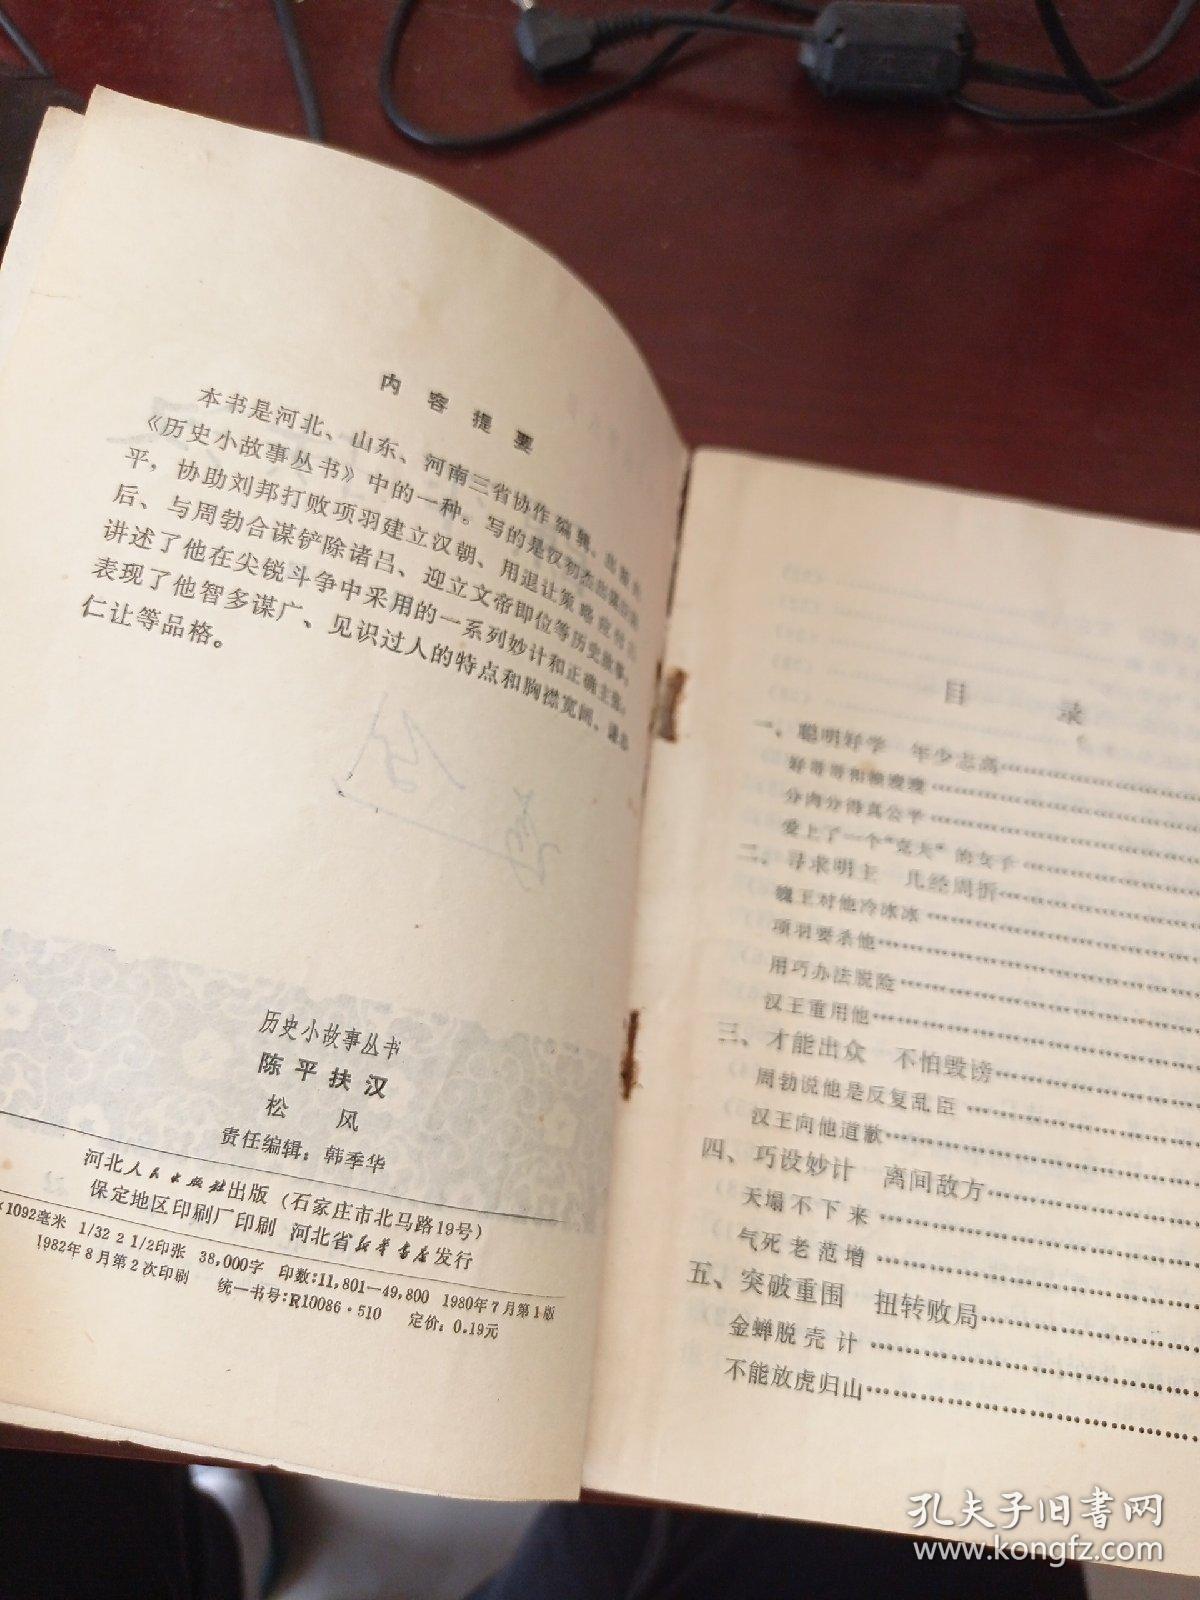 内容提要
本书是河北、山东、河南三省协作编辑、出版的
《历史小故事丛书》中的一种。写的是汉初杰出谋臣陈
平，协助刘邦打败项羽建立汉朝、用退让策略应付吕
后、与周勃合谋铲除诸吕、迎立文帝即位等历史故事。
讲述了他在尖锐斗争中采用的一系列妙计和正确主张，
表现了他智多谋广、见识过人的特点和胸襟宽阔、谦恭
仁让等品格。
历史小故事丛书
陈平扶汉
松 风
责任编辑：韩季华
河北人民出版社出版（石家庄市北马路19号）
保定地区印刷厂印刷 河北省新华书店发行
×1092毫米 1/32 2 1/2印张 38,000字 印数：11,801—49,800 1980年7月第1版
1982年8月第2次印刷 统一书号：R10086·510 定价：0.19元
目 录
一、聪明好学 年少志高……………
好哥哥和懒嫂嫂……………
分肉分得真公平……………
爱上了一个“克夫”的女子……………
二、寻求明主 几经周折……………
魏王对他冷冰冰……………
项羽要杀他……………
用巧办法脱险……………
汉王重用他……………
三、才能出众 不怕毁谤……………
周勃说他是反复乱臣……………
汉王向他道歉……………
四、巧设妙计 离间敌方……………
天塌不下来……………
气死老范增……………
五、突破重围 扭转败局……………
金蝉脱壳计……………
不能放虎归山……………
孔夫子旧书网
www.kongfz.com